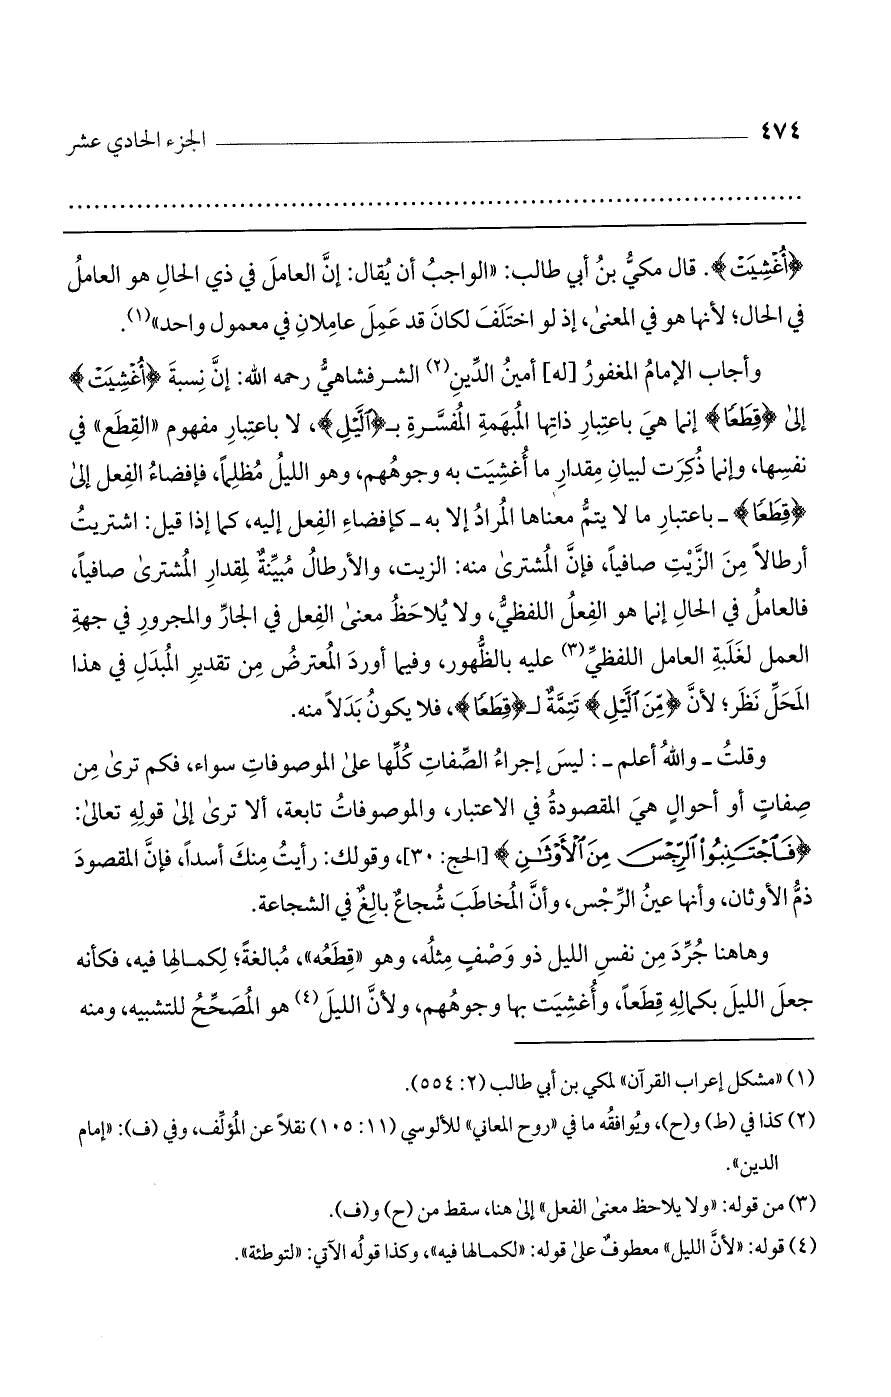 ٤٧٤ الجزء الحادي عشر
﴿أُغْشِيَتْ﴾. قال مكيُّ بنُ أبي طالب: «الواجبُ أن يُقال: إنَّ العاملَ في ذي الحالِ هو العاملُ
في الحال؛ لأنها هو في المعنىٰ، إذ لو اختَلَفَ لكانَ قد عَمِلَ عامِلانِ في معمول واحد»(١).
وأجاب الإمامُ المغفورُ [له] أمينُ الدِّينِ(٢) الشرفشاهيُّ رحمه الله: إنَّ نِسبةَ ﴿أُغْشِيَتْ﴾
إلىٰ ﴿قِطَعًا﴾ إنما هيَ باعتِبارِ ذاتِها المُبهَمةِ المُفسَّرةِ بـ﴿ٱلَّيْلِ﴾، لا باعتِبارِ مفهوم «القِطَع» في
نفسِها، وإنما ذُكِرَت لبيانِ مِقدارِ ما أُغشِيَت به وجوهُهم، وهو الليلُ مُظلِماً، فإفضاءُ الفِعل إلىٰ
﴿قِطَعًا﴾ ـ باعتبارِ ما لا يتمُّ معناها المُرادُ إلا به ـ كإفضاءِ الفِعل إليه، كما إذا قيل: اشتريتُ
أرطالاً مِنَ الزَّيْتِ صافياً، فإنَّ المُشترىٰ منه: الزيت، والأرطالُ مُبيِّنةٌ لِمقدارِ المُشترىٰ صافياً،
فالعاملُ في الحالِ إنما هو الفِعلُ اللفظيُّ، ولا يُلاحَظُ معنىٰ الفِعل في الجارِّ والمجرورِ في جهةِ
العمل لغَلَبةِ العامل اللفظيِّ(٣) عليه بالظُّهور، وفيما أوردَ المُعترضُ مِن تقديرِ المُبدَلِ في هذا
المَحَلِّ نَظَر؛ لأنَّ ﴿مِّنَ ٱلَّيْلِ﴾ تَتِمَّةٌ لـ﴿قِطَعًا﴾، فلا يكونُ بَدَلاً منه.
وقلتُ ـ واللهُ أعلم ـ : ليسَ إجراءُ الصِّفاتِ كُلِّها علىٰ الموصوفاتِ سواء، فكم ترىٰ مِن
صِفاتٍ أو أحوالٍ هيَ المقصودةُ في الاعتبار، والموصوفاتُ تابعة، ألا ترىٰ إلىٰ قولِهِ تعالىٰ:
﴿فَٱجْتَـنِبُوا۟ ٱلرِّجْسَ مِنَ ٱلْأَوْثَـٰنِ﴾ [الحج: ٣٠]، وقولك: رأيتُ مِنكَ أسداً، فإنَّ المقصودَ
ذمُّ الأوثان، وأنها عينُ الرِّجْس، وأنَّ المُخاطَبَ شُجاعٌ بالِغٌ في الشجاعة.
وهاهنا جُرِّدَ مِن نفسِ الليل ذو وَصْفٍ مِثلُه، وهو «قِطَعُه»، مُبالغةً؛ لِكمالِها فيه، فكأنه
جعلَ الليلَ بكمالِهِ قِطَعاً، وأُغشِيَت بها وجوهُهم، ولأنَّ الليلَ(٤) هو المُصَحِّحُ للتشبيه، ومنه
(١) «مشكل إعراب القرآن» لمكي بن أبي طالب (٢: ٥٥٤).
(٢) كذا في (ط) و(ح)، ويُوافقُه ما في «روح المعاني» للألوسي (١١: ١٠٥) نقلاً عن المُؤلِّف، وفي (ف): «إمام
الدين».
(٣) من قوله: «ولا يلاحظ معنىٰ الفعل» إلىٰ هنا، سقط من (ح) و(ف).
(٤) قوله: «لأنَّ الليل» معطوفٌ علىٰ قوله: «لكمالها فيه»، وكذا قولُه الآتي: «لتوطئة».